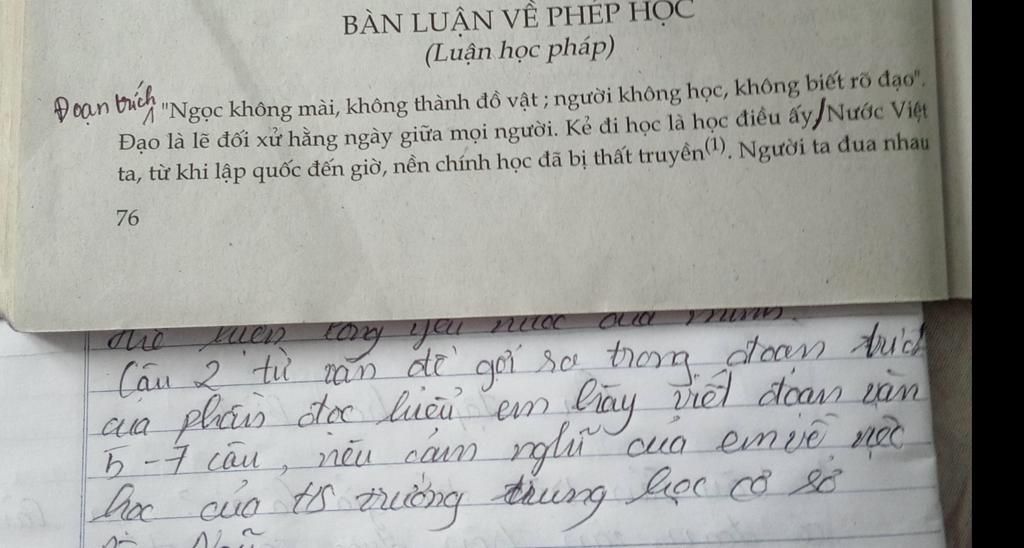 BÀN LUẬN VỀ PHÉP HỌC
(Luận học pháp)
Đoạn trích "Ngọc không mài, không thành đồ vật ; người không học, không biết rõ đạo".
Đạo là lẽ đối xử hằng ngày giữa mọi người. Kẻ đi học là học điều ấy/Nước Việt
ta, từ khi lập quốc đến giờ, nền chính học đã bị thất truyền(1). Người ta đua nhau
76
yêu nước của mình.
Câu 2 từ vấn đề gợi ra trong đoạn trích
của phần đọc hiểu em hãy viết đoạn văn
5-7 câu, nêu cảm nghĩ của em về việc
học của HS trường trung học cơ sở